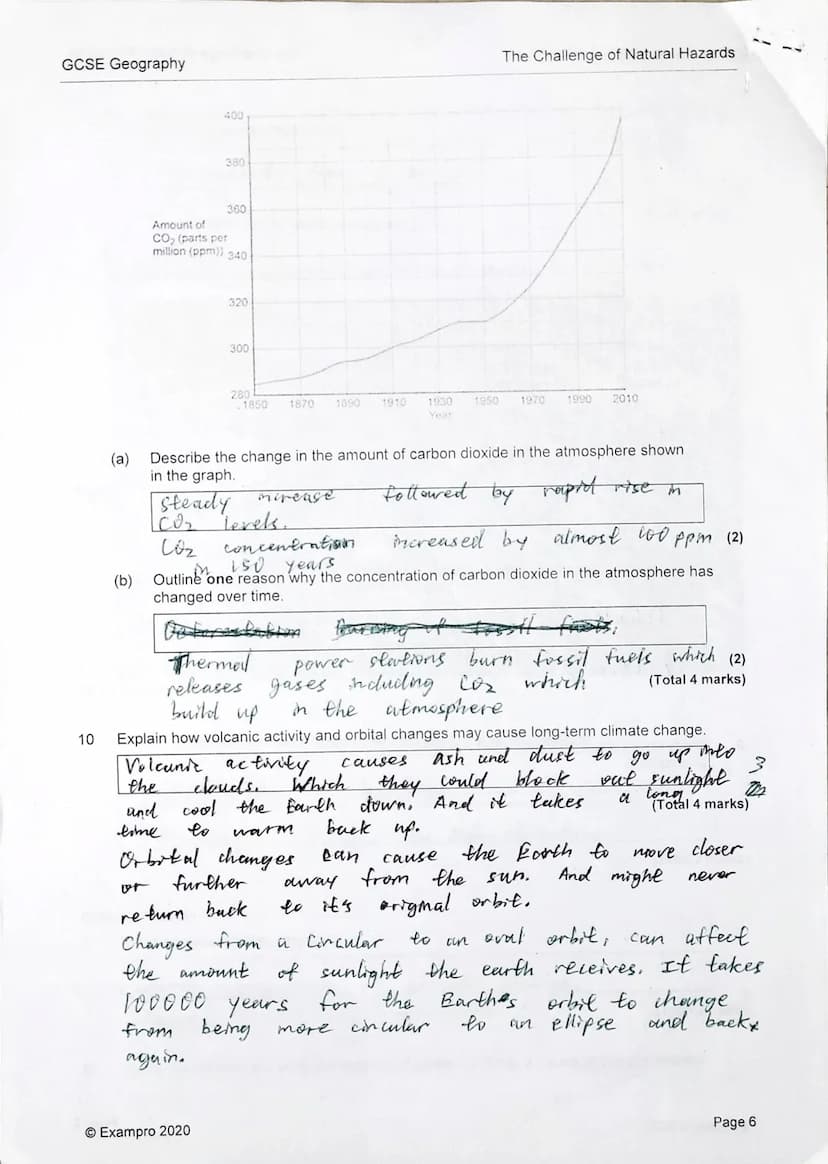 GCSE Geography
The Challenge of Natural Hazards
400
380
360
Amount of
CO₂ (parts per
million (ppm))
340
320
300
280
1850 1870 1890 1910 1930 1950 1970 1990 2010
Year
(a) Describe the change in the amount of carbon dioxide in the atmosphere shown
in the graph.
steady increase followed by rapid rise in
CO₂ levels.
CO₂ concentration increased by almost 100 ppm (2)
in 150 years
(b) Outline one reason why the concentration of carbon dioxide in the atmosphere has
changed over time.
Deforestation Burning of fossil fuels.
Thermal power stations burn fossil fuels which (2)
releases gases including CO₂ which (Total 4 marks)
build up in the atmosphere
10 Explain how volcanic activity and orbital changes may cause long-term climate change.
Volcanic activity causes ash and dust to go up into
the clouds. Which they could block out sunlight 3
and cool the Earth down. And it takes a long (Total 4 marks)
time to warm back up.
Orbital changes can cause the Earth to move closer
or further away from the sun. And might never
return back to it's original orbit.
Changes from a circular to an oval orbit, can affect
the amount of sunlight the earth receives. It takes
100000 years for the Earths orbit to change
from being more circular to an ellipse and back
again.
© Exampro 2020
Page 6